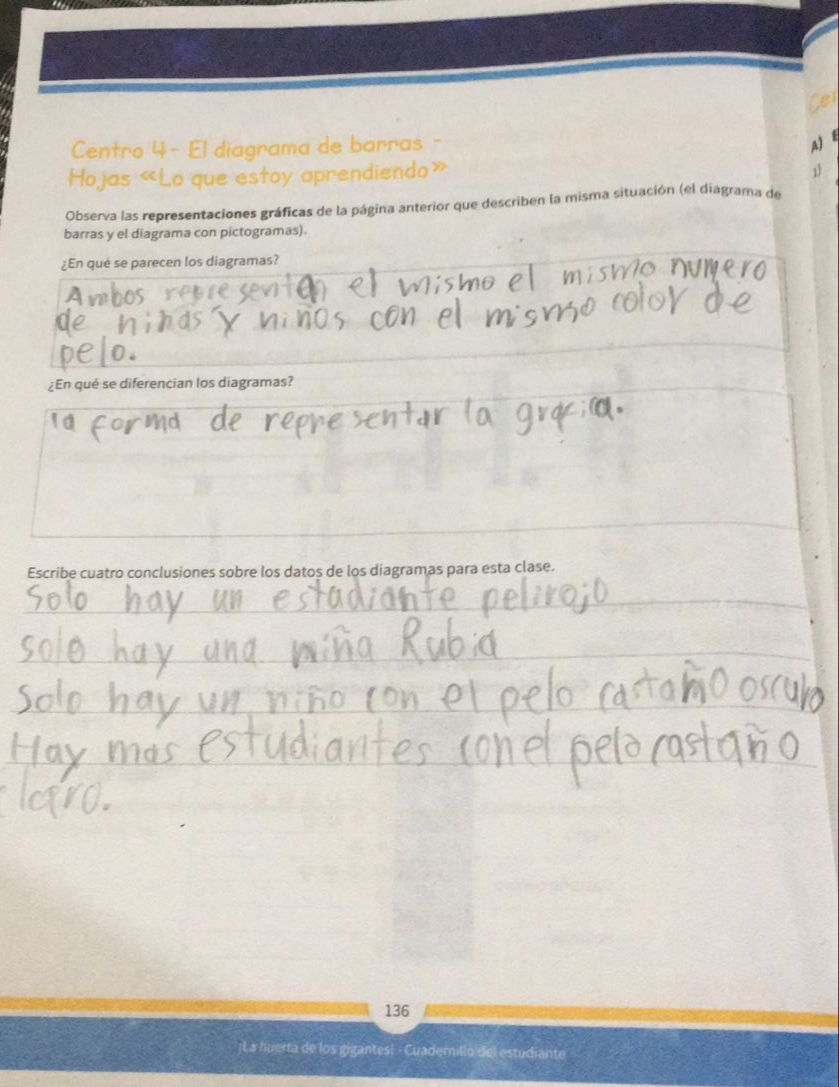 Centro 4 - El diagrama de barras -
Hojas «Lo que estoy aprendiendo»
Observa las representaciones gráficas de la página anterior que describen la misma situación (el diagrama de
barras y el diagrama con pictogramas).
¿En qué se parecen los diagramas?
Ambos representan el mismo el mismo numero
de niñas y niños con el mismo color de
pelo.
¿En qué se diferencian los diagramas?
la forma de representar la grafica.
Escribe cuatro conclusiones sobre los datos de los diagramas para esta clase.
Solo hay un estadiante pelirojo
solo hay una niña Rubia
Solo hay un niño con el pelo castaño osculo
Hay mas estudiantes con el pelo castaño
claro.
136
¡La huerta de los gigantes! - Cuadernillo del estudiante
Cen
A) E
1)